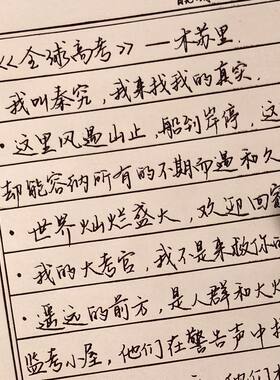 《全球高考》——木苏里.
我叫秦究,我来找我的真实.
·这里风遇山止,船到岸停,这
却能容纳所有的不期而遇和久
·世界灿烂盛大,欢迎回家
·我的大考官,我不是来救你的
·遥远的前方,是人群和大火
监考小屋,他们在警告声中